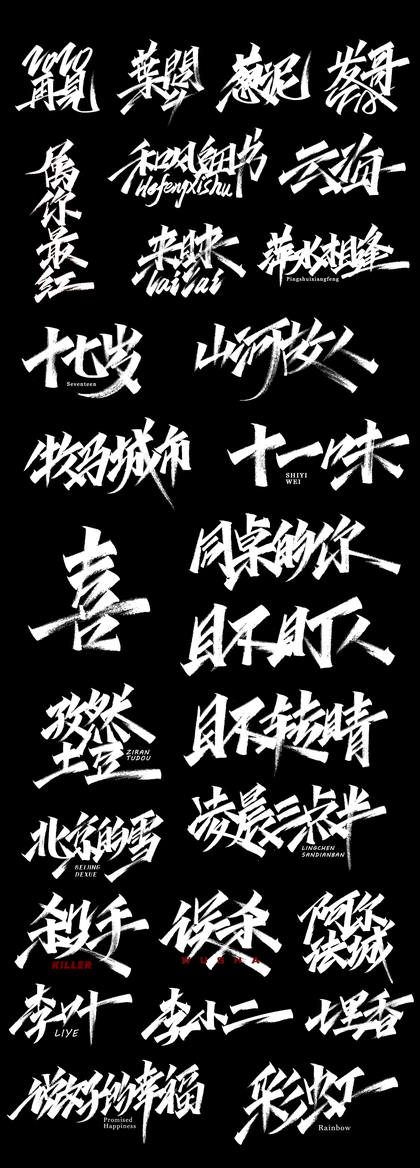 2020
再見
葉問
葱泥
发哥
属你最红
和风细书
Hefengxishu
云海
萍水相逢
Pingshuixiangfeng
十七岁
Seventeen
山河故人
牧马城市
十一味
SHIYI
WEI
喜
同桌的你
目不盯人
孜然
土豆
ZIRAN
TUDOU
目不转睛
北京的雪
BEIJING
DEXUE
凌晨三点半
LINGCHEN
SANDIANBAN
殺手
KILLER
误杀
阿尔
法城
李叶
LIYE
李小二
七里香
说好的幸福
Promised
Happiness
彩虹
Rainbow